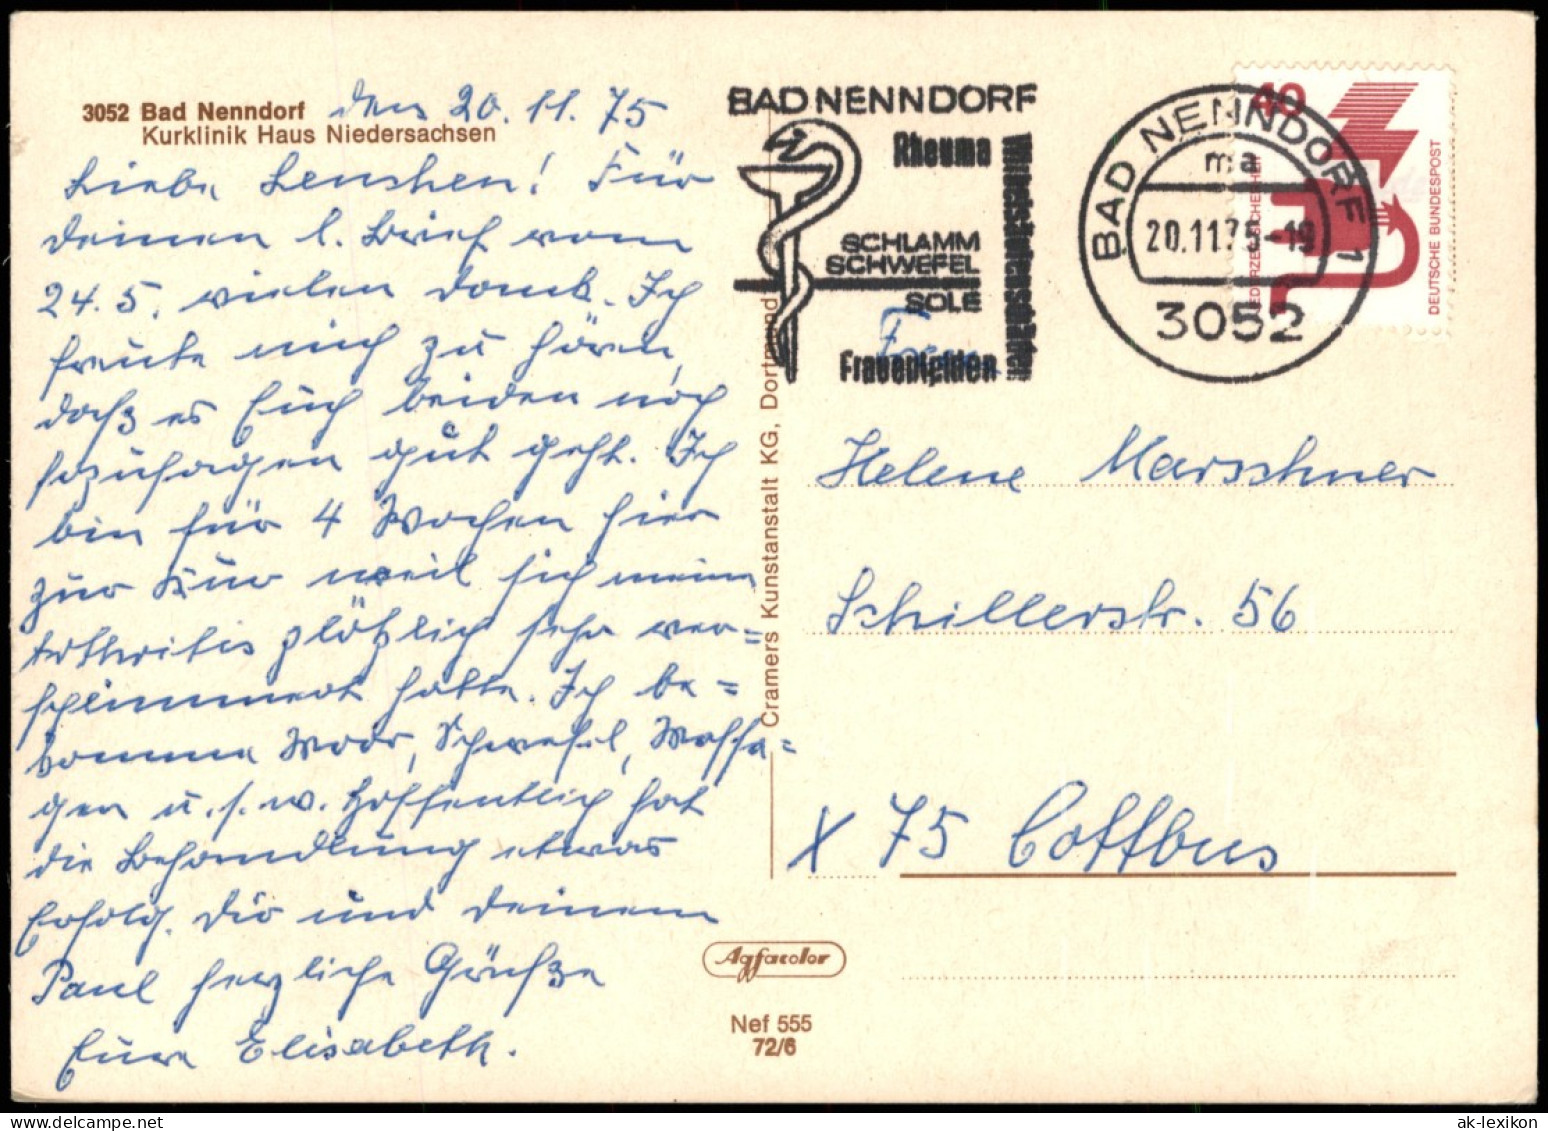 3052 Bad Nenndorf
Kurklinik Haus Niedersachsen
den 20.11.75
Liebe Lenchen! Für
deinen l. Brief vom
24.5. vielen Dank. Ich
freute mich zu hören,
daß es Euch beiden noch
sozusagen gut geht. Ich
bin für 4 Wochen hier
zur Kur weil sich meine
Arthritis plötzlich sehr ver=
schlimmert hatte. Ich be=
komme Moor, Schwefel, Massa=
gen u.s.w. Hoffentlich hat
die Behandlung etwas
Erfolg. Dir und deinem
Paul herzliche Grüße
Eure Elisabeth.
Cramers Kunstanstalt KG, Dortmund
Agfacolor
Nef 555
72/6
BAD NENNDORF
Rheuma
SCHLAMM
SCHWEFEL
SOLE
Frauenleiden
BAD NENNDORF 1
ma
20.11.75-19
3052
40
DEUTSCHE BUNDESPOST
Frau
Helene Marschner
Schillerstr. 56
X 75 Cottbus
ak-lexikon